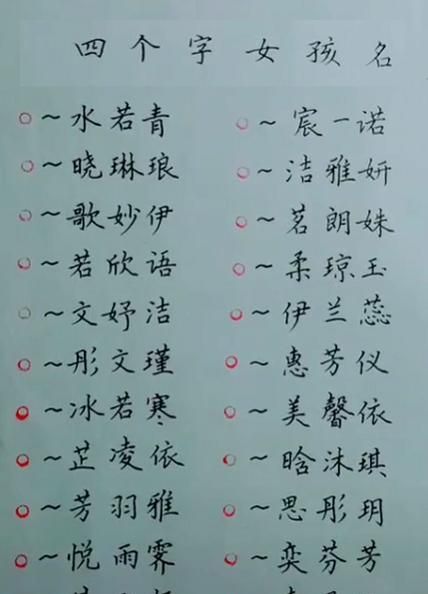 四个字女孩名
~水若青 ~宸一诺
~晓琳琅 ~洁雅妍
~歌妙伊 ~茗朗姝
~若欣语 ~柔琼玉
~文妤洁 ~伊兰蕊
~彤文瑾 ~惠芳仪
~冰若寒 ~美馨依
~芷凌依 ~晗沐琪
~芳羽雅 ~思彤玥
~悦雨霁 ~奕芬芳